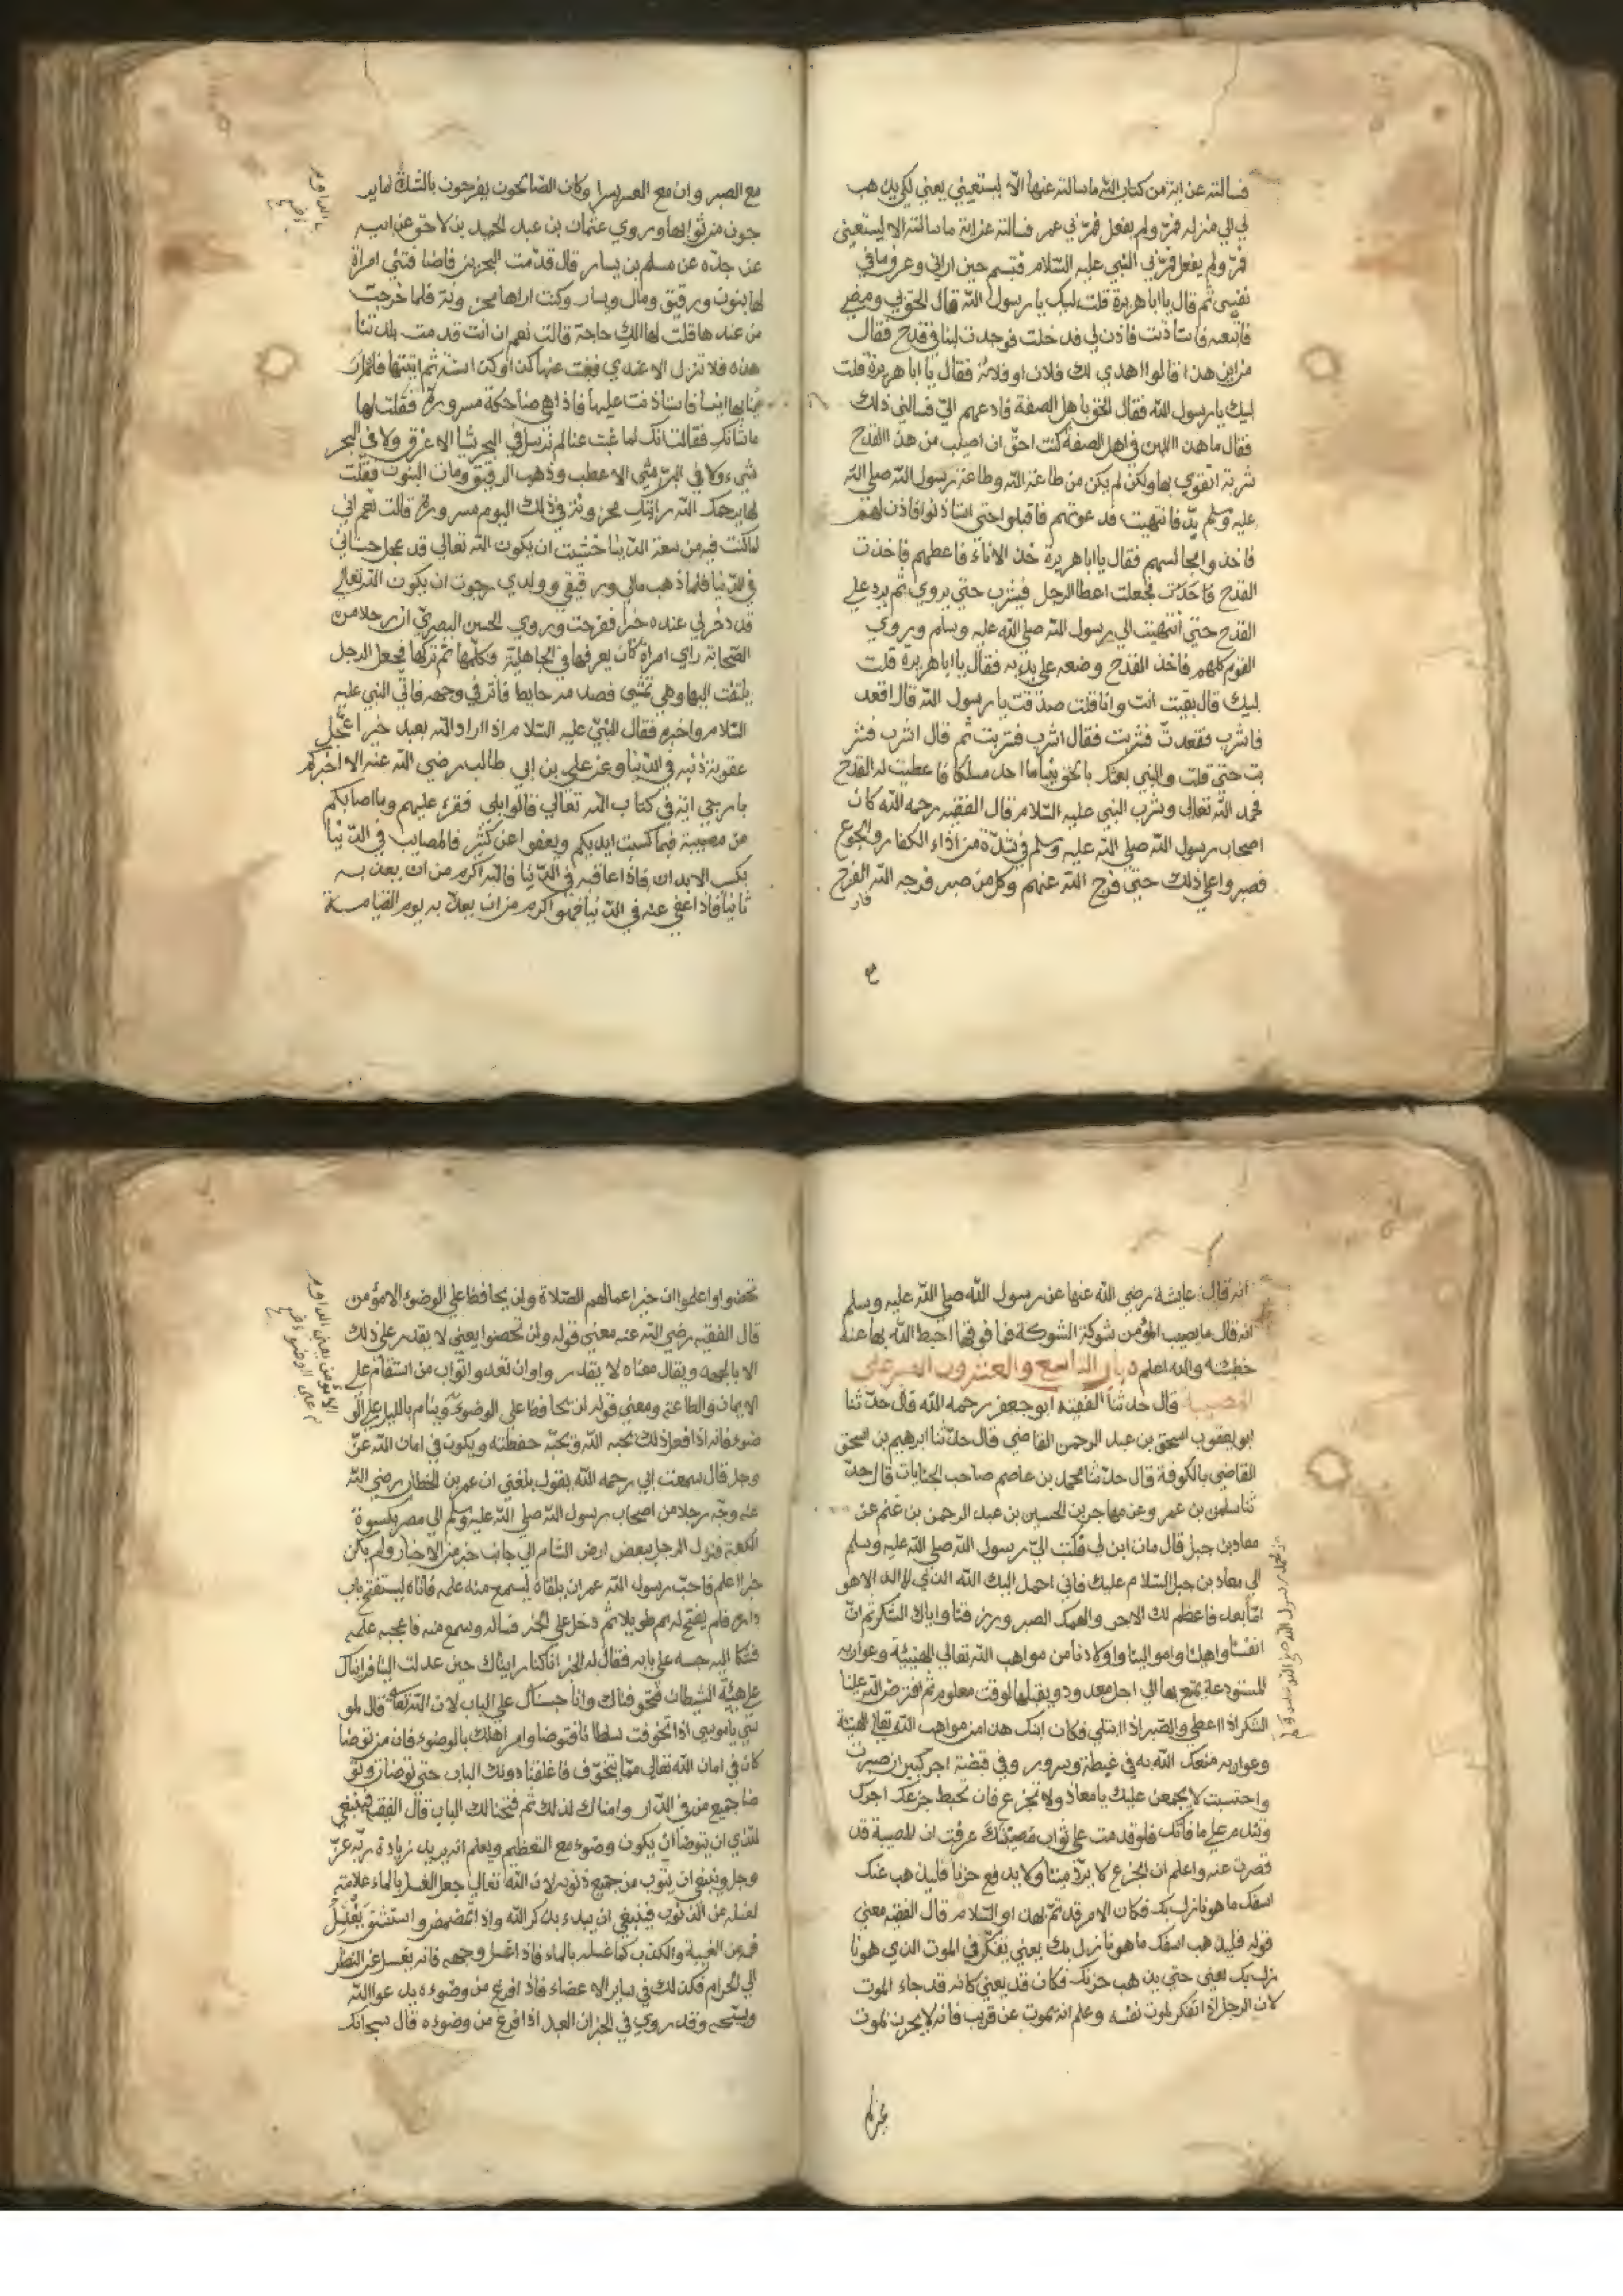 فسالته عن اية من كتاب الله ما سالته عنها الا ليستعيني يعني لكي يذهب
لي الي منزله فمرّ ولم يفعل فمرّ بي عمر فسالته عن اية ما سالته الا ليستعيني
فمرّ ولم يفعل فمرّ بي النبي عليه السّلام فتبسم حين اراني وعرف ما في
نفسي ثم قال يا ابا هريرة قلت لبيك يا رسول الله قال الحق بي ومضي
فاتبعه فاستاذنت فاذن لي فدخلت فوجدت لبنا في قدح فقال
من اين هذا قالوا اهدي لك فلان او فلانة فقال يا ابا هريرة قلت
لبيك يا رسول الله فقال الحق باهل الصفة فادعهم اليّ فسالني ذلك
فقال ما هذا اللبن في اهل الصفة كنت احقّ ان اصيب من هذا القدح
شربة اتقوي بها ولكن لم يكن من طاعة الله وطاعة رسول الله صلي الله
عليه وسلم بدّ فانتهيت فدعوتهم فاقبلوا حتي استاذنوا فاذن لهم
فاخذوا مجالسهم فقال يا ابا هريرة خذ الاناء فاعطهم فاخذت
القدح فاخذت فجعلت اعطا الرجل فيشرب حتي يروي ثم يرد علي
القدح حتي انتهيت الي رسول الله صلي الله عليه وسلم ويروي
القوم كلهم فاخذ القدح وضعه علي يديه فقال يا ابا هريرة قلت
لبيك قال بقيت انت وانا قلت صدقت يا رسول الله قال اقعد
فاشرب فقعدتّ فشربت فقال اشرب فشربت ثم قال اشرب فشر
بت حتي قلت والذي بعثك بالحق نبيا ما اجد مسلكا فاعطيت له القدح
فحمد الله تعالي وشرب النبي عليه السّلام قال الفقيه رحمه الله كان
اصحاب رسول الله صلي الله عليه وسلم في شدّة من اذاء الكفار والجوع
فصبروا علي ذلك حتي فرّج الله عنهم وكل من صبر فرجه الله الفرج
فار
مع الصبر وان مع العسر يسرا وكان الصّالحون يفرحون بالشّدّة لما ير
جون من ثوابها وروي عثمان بن عبد الحميد بن لاحق عن ابيه
عن جدّه عن مسلم بن يسار قال قدّمت البحرين فاضا فتني امراة
لها بنون ورقيق ومال ويسار وكنت اراها محزونة فلما خرجت
من عندها قلت لها الك حاجة قالت نعم ان انت قدمت بلدتنا
هذه فلا تنزل الا عندي فغبت عنها كذا وكذا سنة ثم اتيتها فلم ار
ببابها انسا فاستاذنت عليها فاذا هي ضاحكة مسرورة فقلت لها
ما شانك فقالت انك لما غبت عنا لم نرسل في البحر شيا الا غرق ولا في البحر
شيء ولا في البرّ شي الا عطب وذهب الرقيق ومات البنون فقلت
لها يرحمك الله رايتك محزونة في ذلك اليوم مسرورة قالت نعم اني
لما كنت فيه من سعة الدّنيا خشيت ان يكون الله تعالي قد عجل حسناتي
في الدّنيا فلما ذهب مالي ورقيقي وولدي رجوت ان يكون الله تعالي
قد دخر لي عنده خيرا ففرحت وروي الحسن البصريّ ان رجلا من
الصّحابة راي امراة كان يعرفها في الجاهلية فكلمها ثم تركها فجعل الرجل
يلتفت اليها وهي تمشي فصدمه حايط فاثر في وجهه فاتي النبي عليه
السّلام واخبره فقال النبي عليه السّلام اذا اراد الله بعبد خيرا عجّل
عقوبة ذنبه في الدّنيا وعن علي بن ابي طالب رضي الله عنه الا اخبركم
بارجي اية في كتاب الله تعالي قالوا بلي فقرء عليهم وما اصابكم
من مصيبة فيما كسبت ايديكم ويعفوا عن كثير فالمصايب في الدّنيا
بكسب الابدان فاذا عاقبه في الدّنيا فالله اكرم من ان يعذبه
ثانيا فاذا عفي عنه في الدّنيا فهو اكرم من ان يعذّبه يوم القيامة
انه قال عايشة رضي الله عنها عن رسول الله صلي الله عليه وسلم
انه قال ما يصيب المؤمن شوكة الشوكة فما فوقها احبط الله بها عنه
خطيئة والله اعلم باب التاسع والعشرون الصبر علي
المصيبة قال حدثنا الفقيه ابو جعفر رحمه الله قال حدّثنا
ابو يعقوب اسحق بن عبد الرحمن القاضي قال حدّثنا ابرهيم بن اسحق
القاضي بالكوفة قال حدّثنا محمد بن عاصم صاحب الخانات قال حدّ
ثنا سليمن بن عمر وعن مهاجر بن الحسين بن عبد الرحمن بن غنم عن
معاذ بن جبل قال مات ابن لي فكتب اليّ رسول الله صلي الله عليه وسلم
الي معاذ بن جبل السّلام عليك فاني احمد اليك الله الذي لا اله الا هو
امّا بعد فاعظم لك الاجر والهمك الصبر ورزقنا واياك الشكر ثم انّ
انفسنا واهلنا واموالينا واولادنا من مواهب الله تعالي الهنيئة وعواريه
المستودعة يمتع بها الي اجل معدود ويقبلها لوقت معلوم ثم افترض الله علينا
الشكر اذا اعطي والصّبر اذا ابتلي فكان ابنك هذا من مواهب الله تعالي الهنيئة
وعواريه متعك الله به في غبطة وسرور وفي قبضة اجر كبير ان صبرت
واحتسبت لا يجمعن عليك يا معاذ ولا تجزع فان يحبط جزعك اجرك
وتندم علي ما فاتك فلو قدمت علي ثواب مصيبتك عرفت ان المصيبة قد
قصرت عنه واعلم ان الجزع لا يردّ ميتا ولا يدفع حزنا فليذهب عنك
اسفك ما هو نازل بك فكان الامر قد تمّ لهذا والسّلام قال الفقيه معني
قوله فليذهب اسفك ما هو نازل بك يعني يتفكّر في الموت الذي هو نا
زل بك يعني حتي يذهب حزنك فكان قد يعني كانه قد جاء الموت
لان الرجل اذا تفكر لموت نفسه وعلم انه يموت عن قريب فانه لا يحزن لموت
تحصوا واعلموا ان خير اعمالهم الصّلاة ولن يحافظ علي الوضوء الا مؤمن
قال الفقيه رضي الله عنه معني قوله ولن تحصوا يعني لا يقدر علي ذلك
الا بالجهد ويقال معناه لا يقدروا وان تعدوا ثواب من استقام علي
الايمان والطاعة ومعني قوله لن يحافظ علي الوضوء وينام بالليل علي الو
ضوء فانه اذا فعل ذلك يحبه الله ويحبّه حفظته ويكون في امان الله عزّ
وجل قال سمعت ابي رحمه الله يقول بلغني ان عمر بن الخطاب رضي الله
عنه وجّه رجلا من اصحاب رسول الله صلي الله عليه وسلم الي مصر بكسوة
الكعبة فنزل الرجل ببعض ارض الشام الي جانب حبر من الاحبار ولم يكن
حبرا اعلم فاحبّ رسول الله عمر ان يلقاه ليسمع منه علمه فاتاه ليستفتح باب
داره فلم يفتح لهم طويلا ثم دخل علي الحبر فساله وسمع منه فاعجبه علمه
فشكا اليه حبسه علي بابه فقال له الحبر انا كنا رايناك حين عدلت الينا فرايناك
علي هيئة الشيطان فتخوفناك وانا حبسناك علي الباب لان الله تعالي قال لمو
سي يا موسي اذا تخوفت سلطانا فتوضا وامر اهلك بالوضوء فان من توضا
كان في امان الله تعالي ممّا يتخوّف فاغلقنا دونك الباب حتي توضات وتو
ضا جميع من في الدّار وامناك لذلك ثم فتحنا لك الباب قال الفقيه فينبغي
للذي ان يتوضا ان يكون وضوءه مع التعظيم ويعلم انه يريد زيادة ربّه عزّ
وجل وينبغي ان يتوب من جميع ذنوبه لان الله تعالي جعل الغسل بالماء علامة
لغسله من الذنوب فينبغي ان يبدء بذكر الله واذا تمضمض واستنشق يغتسل
فمه من الغيبة والكذب كما غسله بالماء فاذا غسل وجهه فانه يغسل عن النظر
الي الحرام فكذلك في ساير الاعضاء فاذا فرغ من وضوءه يدعوا الله
ويسبّحه وقد روي في الخبر ان العبد اذا فرغ من وضوءه قال سبحانك